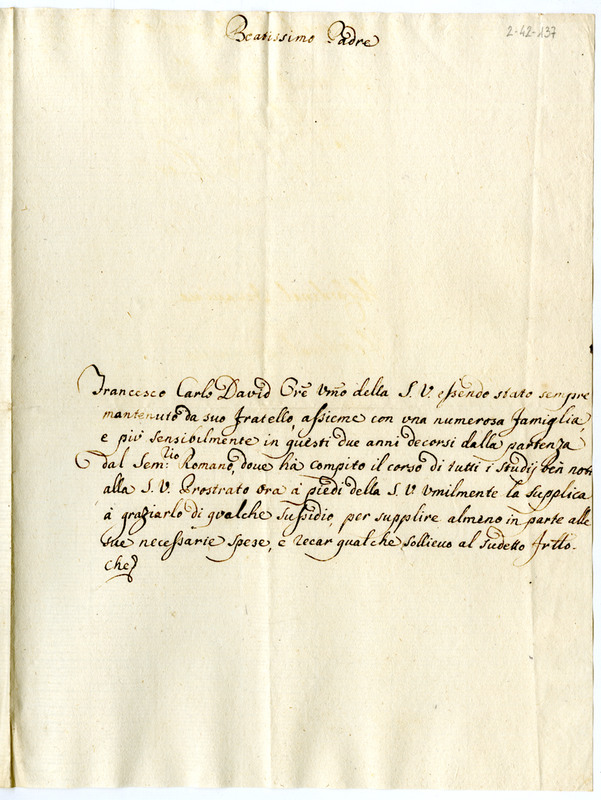 Beatissimo Padre
2-42-137
Francesco Carlo David Ore Vmo della S. V. essendo stato sempre
mantenuto da suo fratello, assieme con vna numerosa famiglia,
e più sensibilmente in questi due anni decorsi dalla partenza
dal Sem:rio Romano, doue hà compito il corso di tutti i Studij ben noti
alla S. V. Prostrato ora à piedi della S. V. Vmilmente la supplica
à graziarlo di qualche sussidio, per supplire almeno in parte alle
sue necessarie spese, e recar qualche sollieuo al sudetto frtto.
che